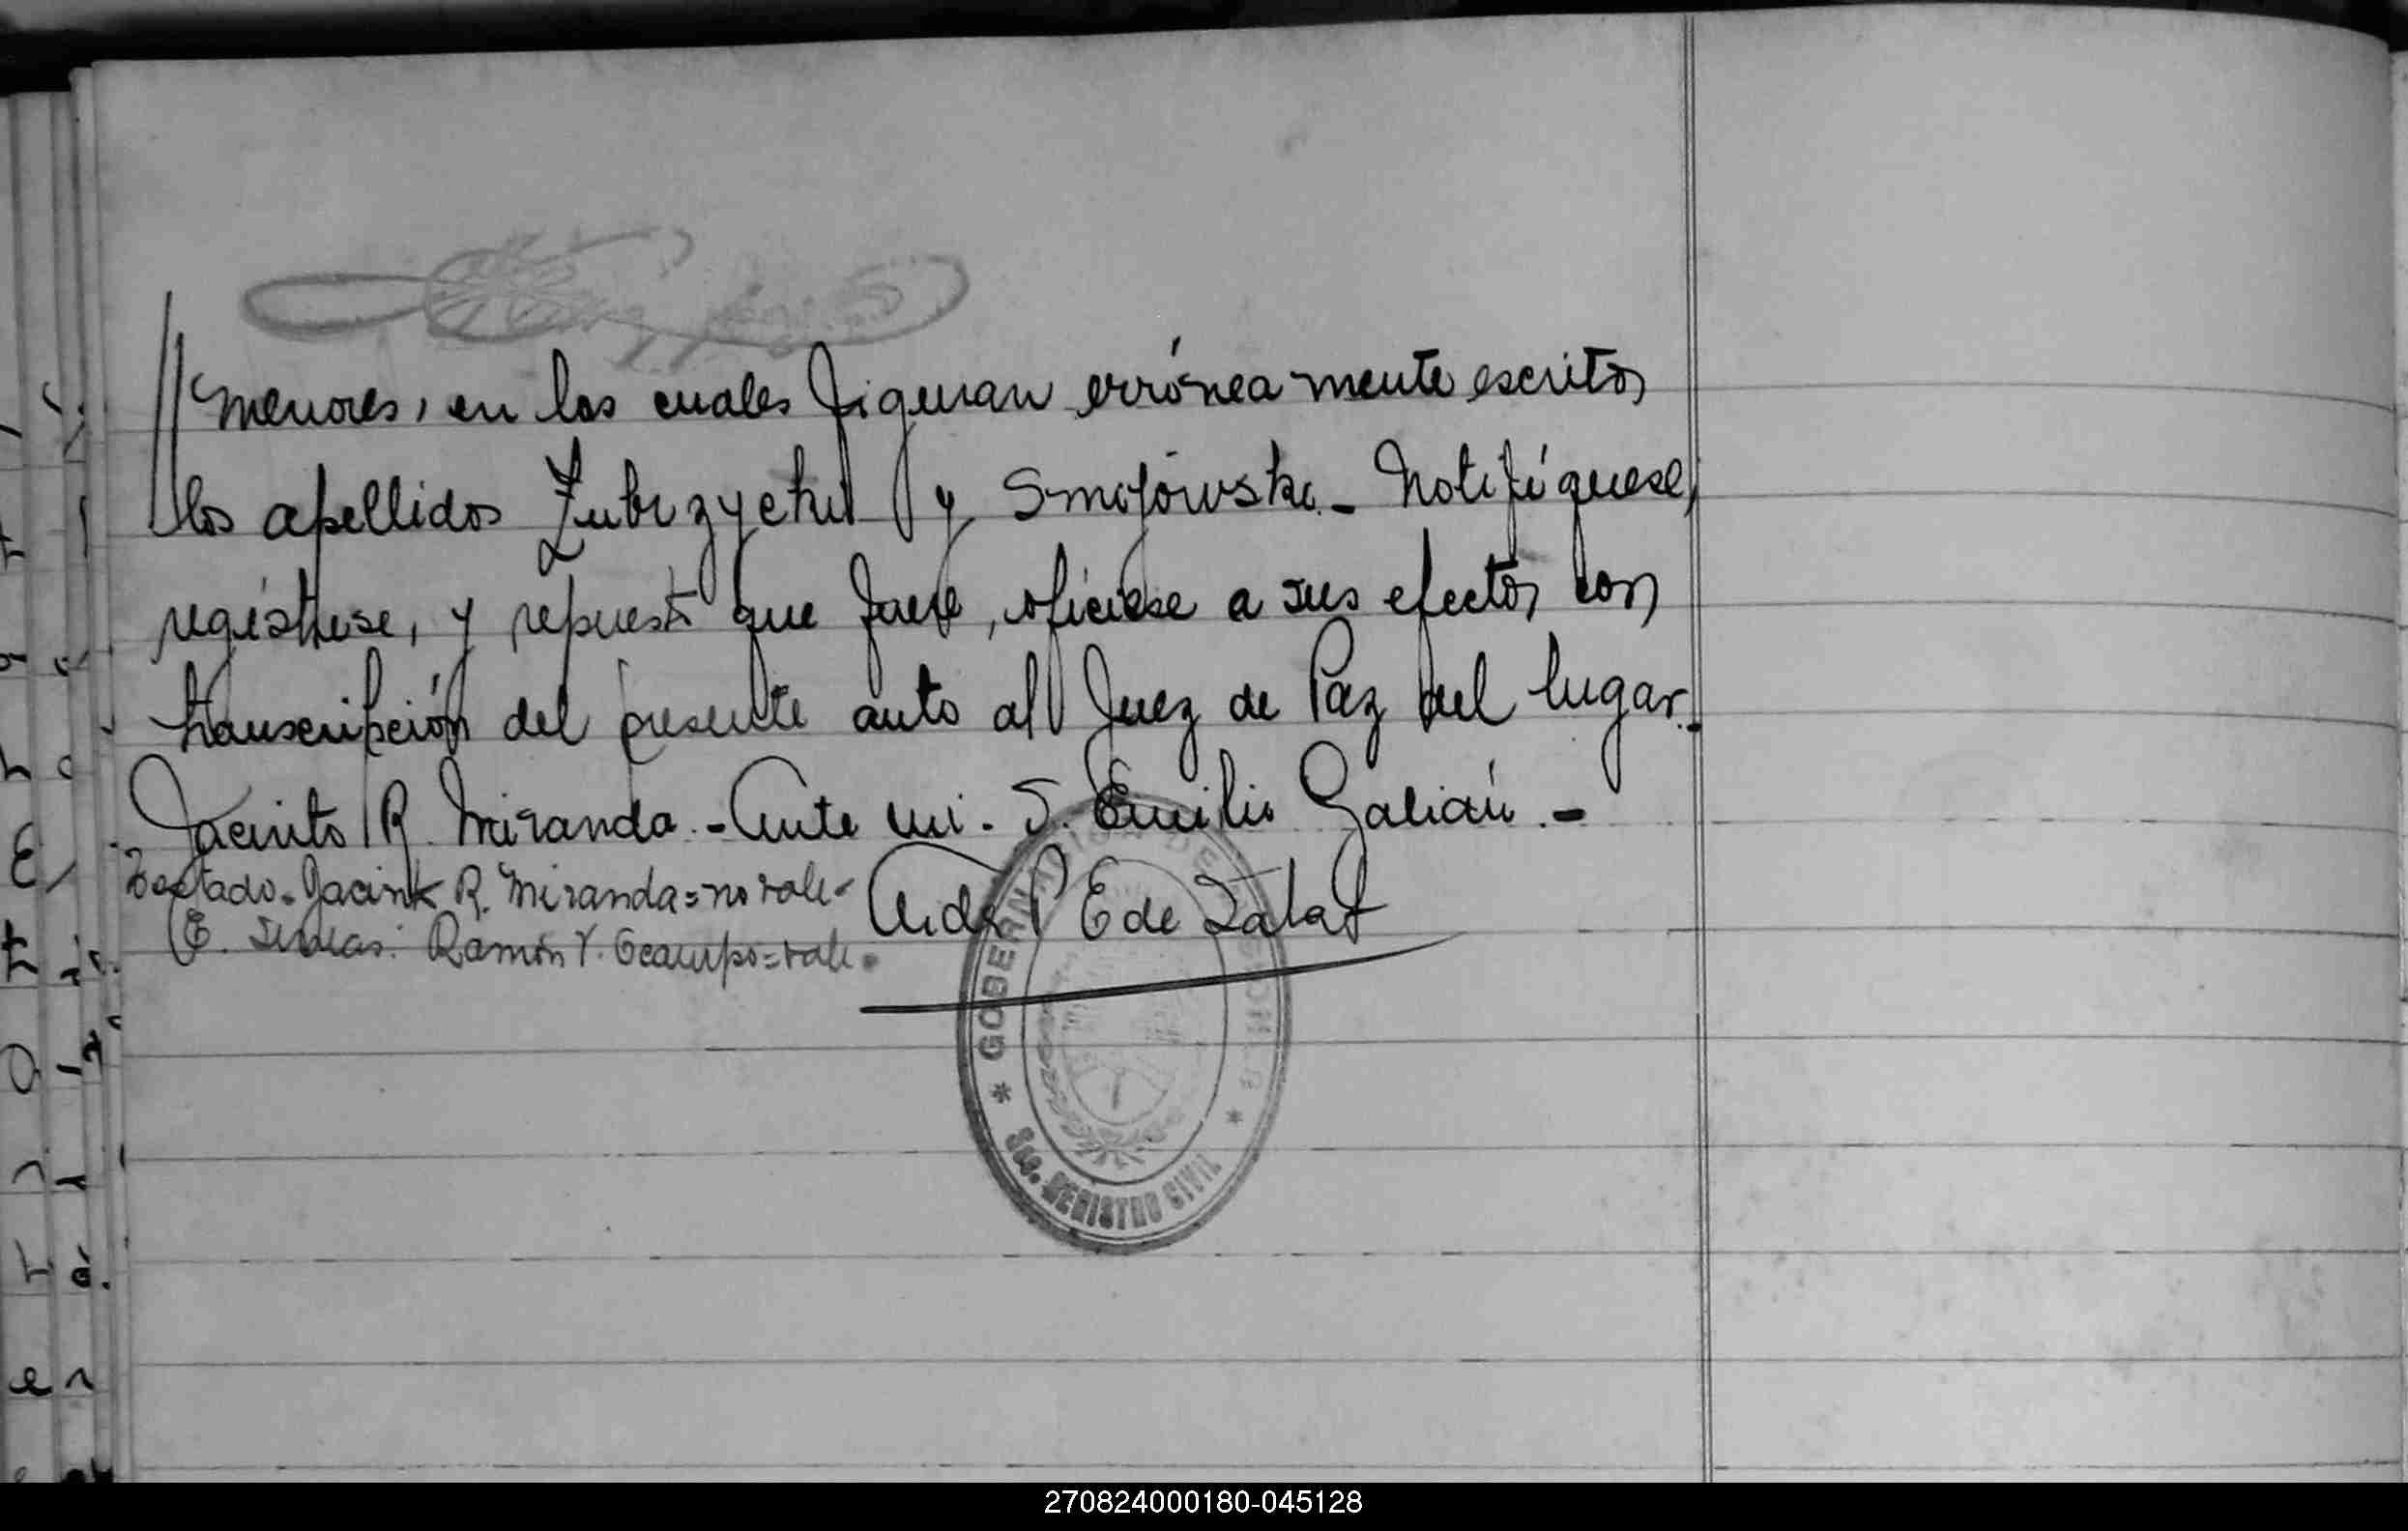 menores, en los cuales figuran errónea mente escritos
los apellidos Zubrzycki y Smojowska - Notifíquese,
regístrese, y repuesto que fuere, ofíciese a sus efectos con
transcripción del presente auto al Juez de Paz del lugar.-
Jacinto R. Miranda.- Ante mi. S. Emilio Galián.-
Testado. Jacinto R. Miranda = no vale-
E. líneas: Ramón V. Ocampo = vale.
Aida E de
GOBERNACION DE MISIONES
Sec. REGISTRO CIVIL
270824000180-045128